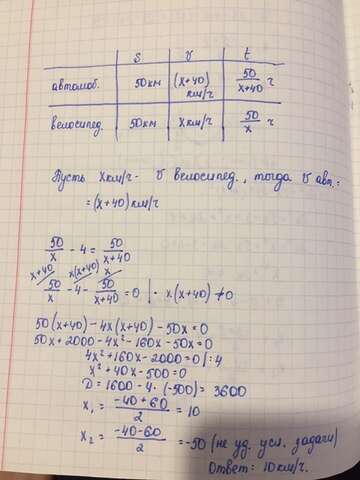 S v t
автомоб. 50км (x+40) км/ч 50/(x+40) ч
велосипед. 50км x км/ч 50/x ч
Пусть x км/ч - v велосипед., тогда v авт. =
= (x+40) км/ч
50/x - 4 = 50/(x+40)
x+40 x(x+40) x
50/x - 4 - 50/(x+40) = 0 | · x(x+40) ≠ 0
50(x+40) - 4x(x+40) - 50x = 0
50x + 2000 - 4x² - 160x - 50x = 0
4x² + 160x - 2000 = 0 | : 4
x² + 40x - 500 = 0
D = 1600 - 4 · (-500) = 3600
x₁ = (-40+60)/2 = 10
x₂ = (-40-60)/2 = -50 (не уд. усл. задачи)
Ответ: 10км/ч.